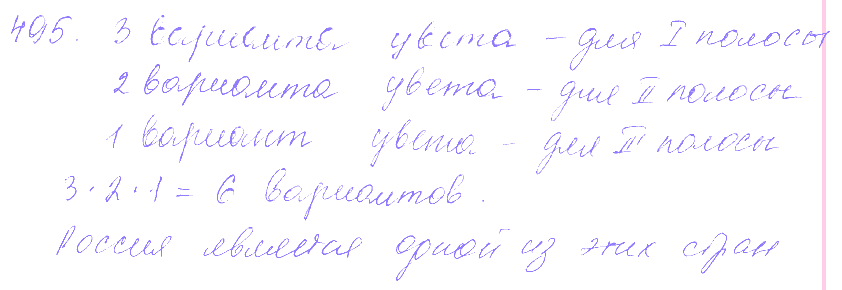 495. 3 варианта цвета - для I полосы
2 варианта цвета - для II полосы
1 вариант цвета - для III полосы
3 · 2 · 1 = 6 вариантов.
Россия является одной из этих стран